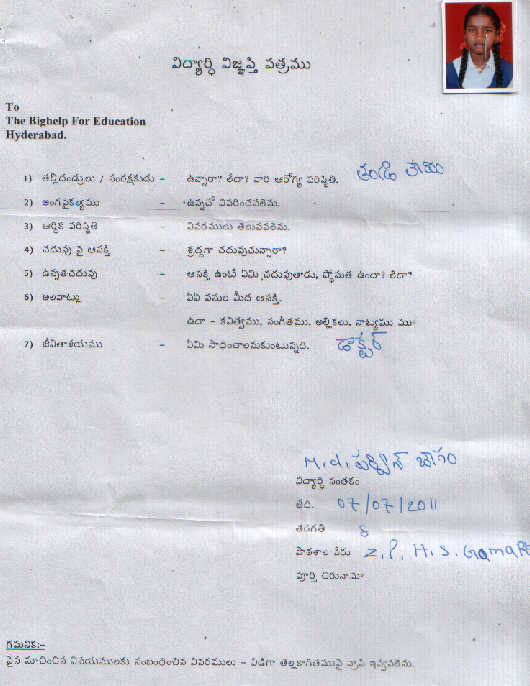 విద్యార్థి విజ్ఞప్తి పత్రము
To
The Bighelp For Education
Hyderabad.
1) తల్లిదండ్రులు / సంరక్షకుడు - ఉన్నారా? లేదా? వారి ఆరోగ్య పరిస్థితి.
2) అంగవైకల్యము - ఉన్నచో వివరించవలెను.
3) ఆర్థిక పరిస్థితి - వివరములు తెలుపవలెను.
4) చదువు పై ఆసక్తి - శ్రద్ధగా చదువుచున్నారా?
5) ఉన్నతచదువు - ఆసక్తి ఉంటే ఏమి చదువుతాడు, స్థోమత ఉందా? లేదా?
6) అలవాట్లు - ఏఏ పనుల మీద ఆసక్తి.
ఉదా - కవిత్వము, సంగీతము, అల్లికలు, నాట్యము ము
7) జీవితాశయము - ఏమి సాధించాలనుకుంటున్నది. డాక్టర్
M.d. పర్వీన్ బేగం
విద్యార్థి సంతకం
తేది. 07/07/2011
తరగతి 8
పాఠశాల పేరు Z.P.H.S. GamaP
పూర్తి చిరునామా
గమనిక:-
పైన సూచించిన విషయములకు సంబంధించిన వివరములు - విడిగా తెల్లకాగితముపై వ్రాసి ఇవ్వవలెను.